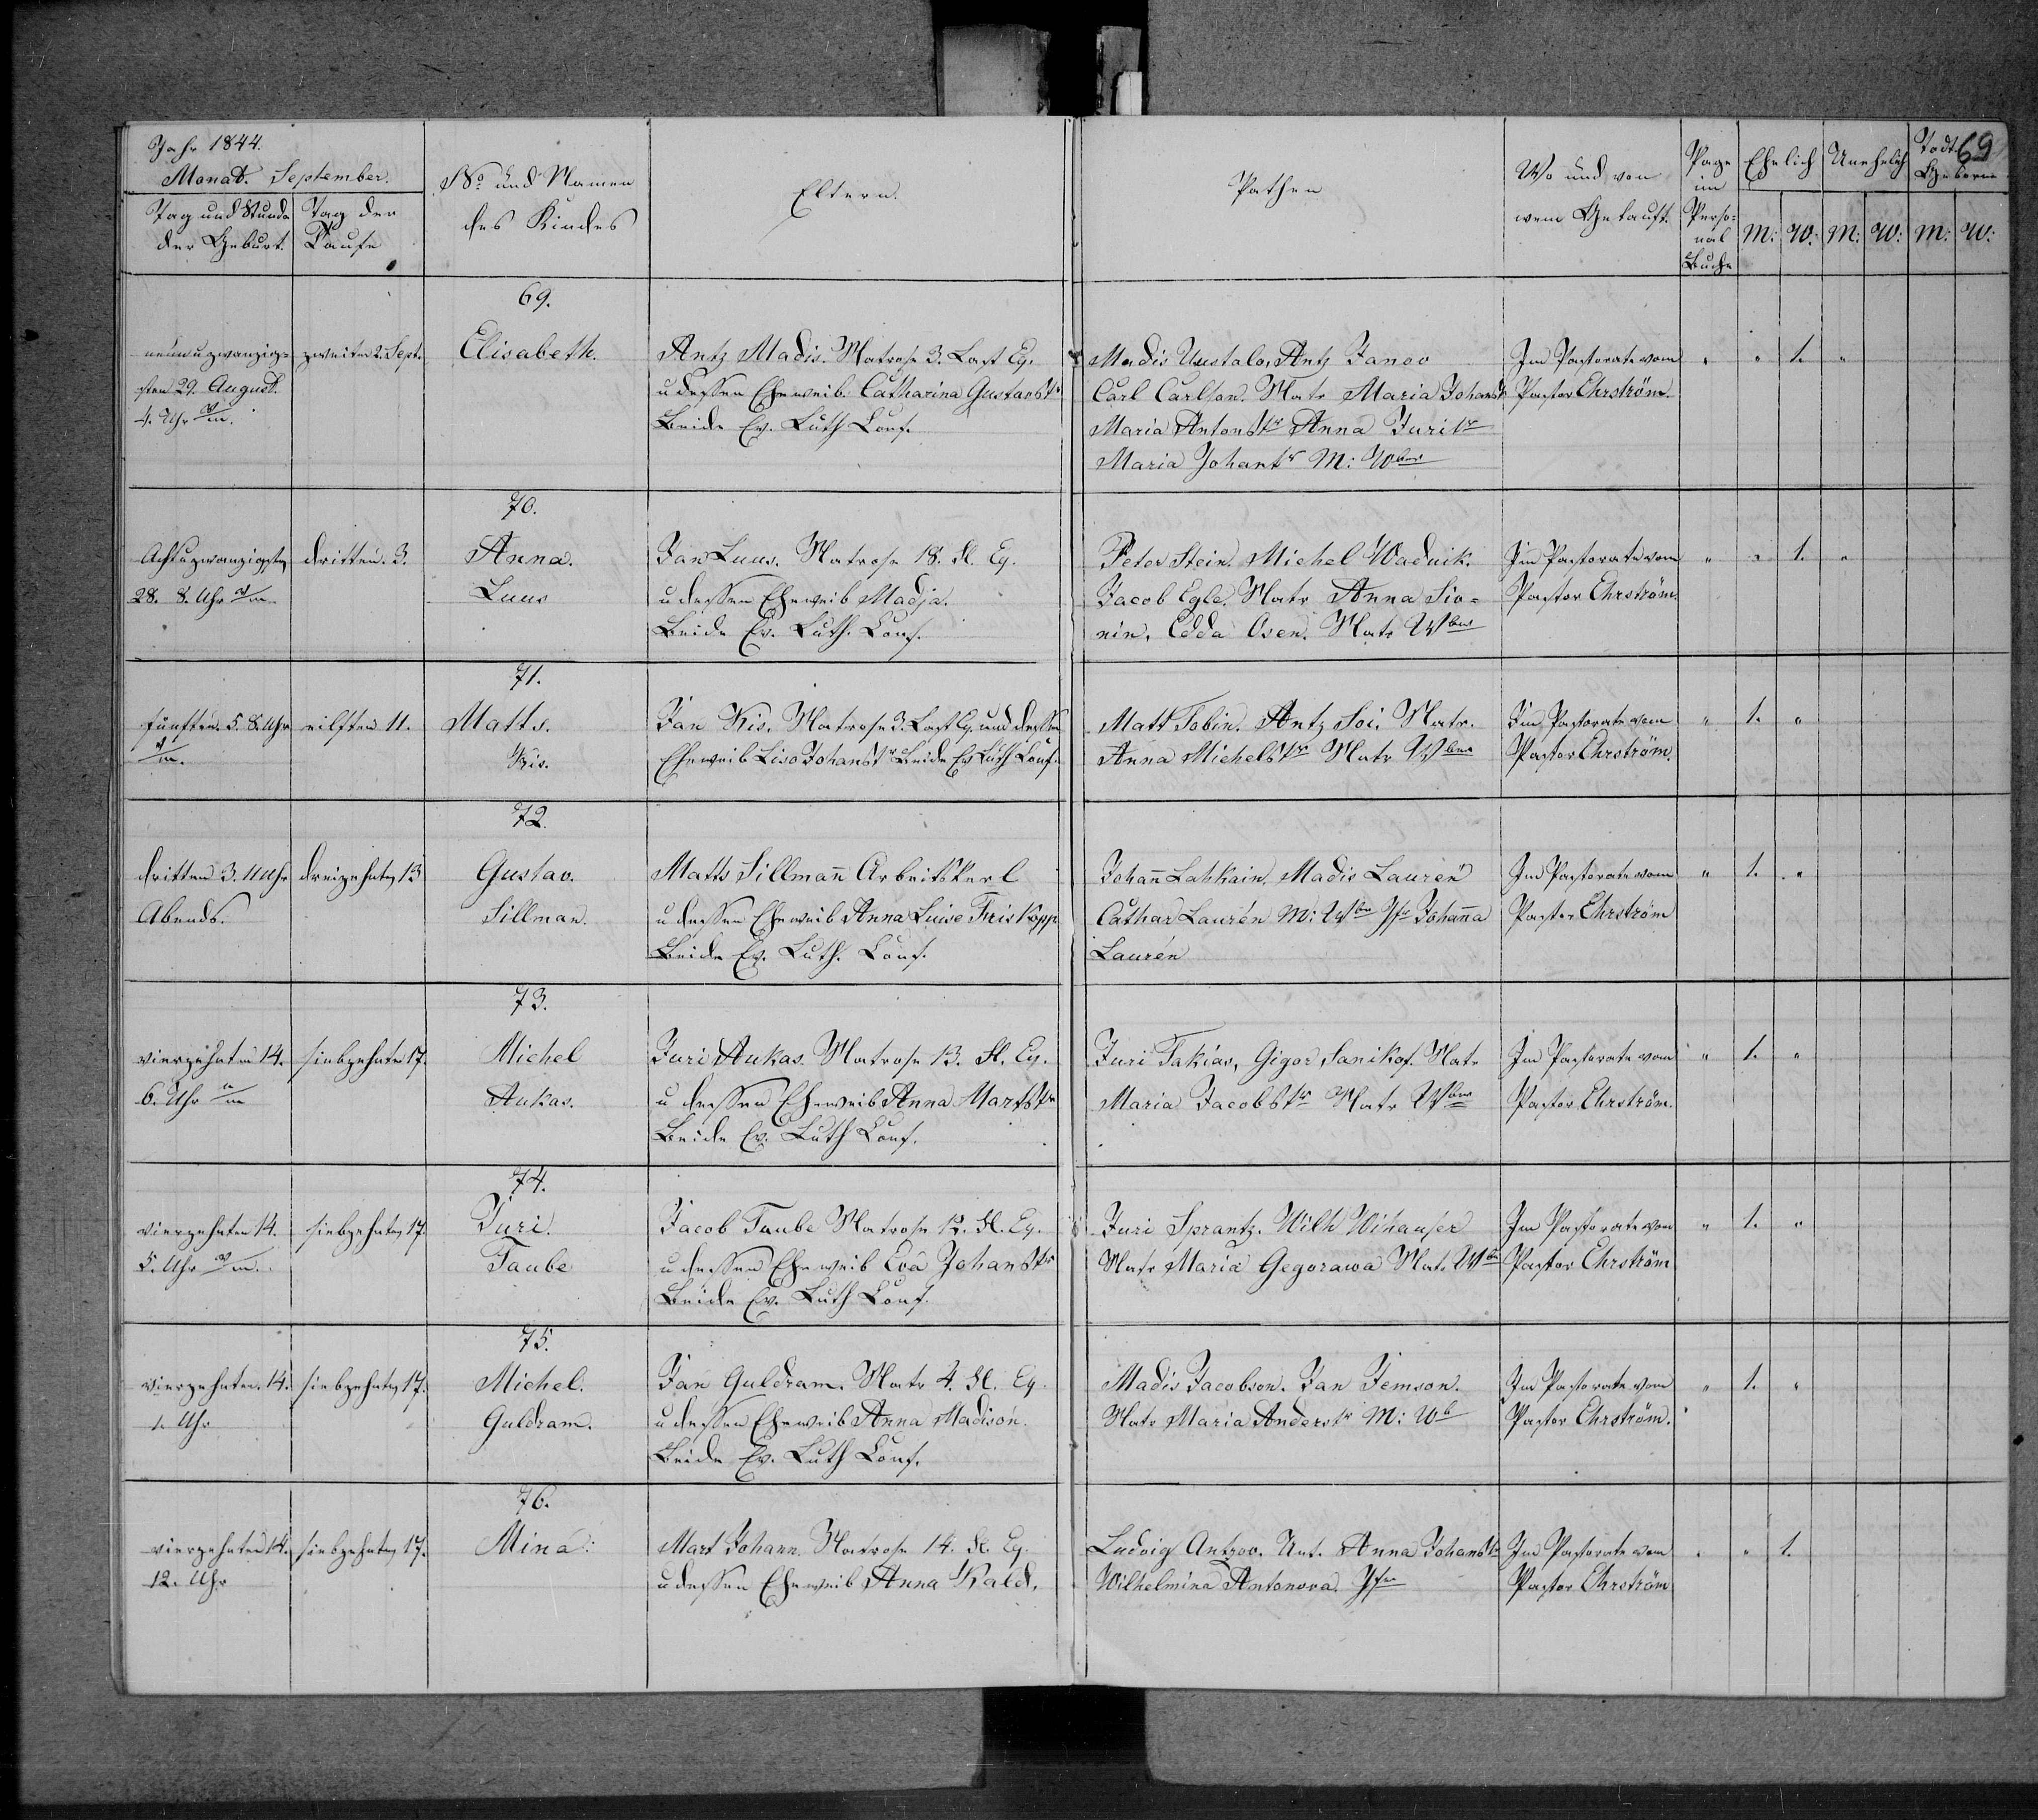 69
Jahr 1844.
Monat. September.
Tag und Stunde
der Geburt.
Tag der
Taufe
No und Namen
des Kindes
Eltern.
Pathen
Wo und von
wem Getauft.
Page
im
Perso-
nal
Buche
Ehelich
Unehelich
Todt
Geborne
M: W: M: W: M: W:
69.
neunuzwanzig-
sten 29. August.
4. Uhr v/m.
zweiten 2. Sept.
Elisabeth.
Antz Madis. Matrose 3. Last Eq.
u dessen Eheweib Catharina Gustavstr
Beide Ev. Luth Conf.
Madis Uustalo, Antz Janov
Carl Carlson. Matr Maria Johanstr
Maria Antonstr Anna Juritr
Maria Johantr M: Wber
Im Pastorate vom
Pastor Ehrström.
" " 1. "
70.
Achtuzwanzigsten
28. 8. Uhr v/m
dritten. 3.
Anna.
Luus
Jan Luus. Matrose 18. Fl. Eq.
u dessen Eheweib Madja.
Beide Ev. Luth. Conf.
Peter Stein. Michel Wadnik.
Jacob Egle. Matr Anna Sio-
nin, Edda Osen. Matr Wber
Im Pastorate vom
Pastor Ehrström
" " 1. "
71.
fünften. 5. 8. Uhr
v/m.
eilften 11.
Matts.
Kis.
Jan Kis. Matrose 3. Last Eq. und dessen
Eheweib Liso Johanstr Beide Ev Luth Conf.
Matt Tobin. Antz Soi. Matr.
Anna Michelstr Matr Wber
Im Pastorate vom
Pastor Ehrström.
" 1. "
72.
dritten 3. 11 Uhr
Abends.
dreizehnten 13
Gustav.
Sillman.
Matts Sillmañ Arbeitskerl
u dessen Eheweib Anna Luise Friskopp
Beide Ev. Luth. Conf.
Johañ Lahkain, Madis Laurén
Cathar Laurén M: Wber Jfr Johaña
Laurén
Im Pastorate vom
Pastor Ehrström
" 1. "
73.
vierzehnten 14.
6. Uhr n/m
siebzehnten 17.
Michel
Aukas.
Juri Aukas. Matrose 13. Fl. Eq.
u dessen Eheweib Anna Martstr
Beide Ev. Luth Conf.
Juri Takias, Gigor Sanikof. Matr
Maria Jacobstr Matr Wber
Im Pastorate vom
Pastor Ehrström.
" 1. "
74.
vierzehnten 14.
5. Uhr v/m.
siebzehnten 17.
Juri.
Taube
Jacob Taube Matrose 12. Fl. Eq.
u dessen Eheweib Eva Johanstr
Beide Ev. Luth Conf.
Juri Sprantz. Wilh Wihauser
Matr Maria Gegorawa Matr Wb
Im Pastorate vom
Pastor Ehrström
" 1. "
75.
vierzehnten. 14.
1. Uhr
siebzehnten 17.
Michel.
Guldram.
Jan Guldram. Matr 4. Fl. Eq.
u dessen Eheweib Anna Madison.
Beide Ev. Luth Conf.
Madis Jacobson. Jan Jemson.
Matr Maria Anderstr M: Wb
Im Pastorate vom
Pastor Ehrström.
" 1. "
76.
vierzehnten 14.
12. Uhr
siebzehnten 17.
Mina:
Mart Johann. Matrose 14. Fl. Eq.
u dessen Eheweib Anna Kald.
Ludvig Antzov. Unt. Anna Johanstr
Wilhelmina Antonova. Jfr
Im Pastorate vom
Pastor Ehrström
" " 1.